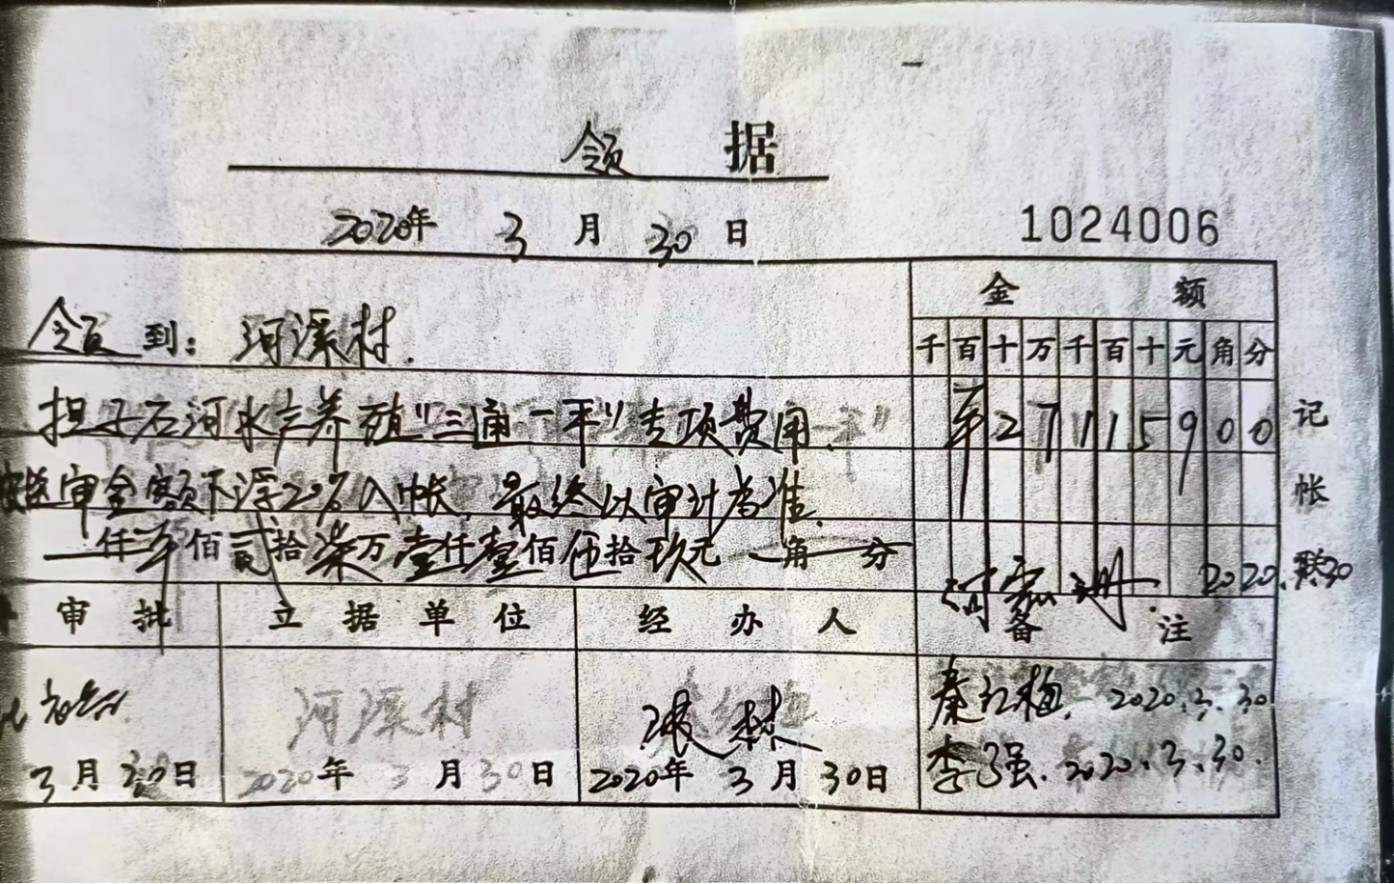 领 据
2020年 3 月 30 日
1024006
金 额
千百十万千百十元角分
领 到：河溪村.
担子石河水产养殖"三通一平"专项费用.
271115900
记帐联
送审金额下浮20%入帐,最终以审计为准.
仟 佰贰拾柒万壹仟壹佰伍拾玖元 角 分
2020.3.30
审 批 立 据 单 位 经 办 人 备 注
河溪村
秦红梅. 2020.3.30
李强. 2020.3.30.
3月30日 2020年 3 月30日 2020年 3 月 30日